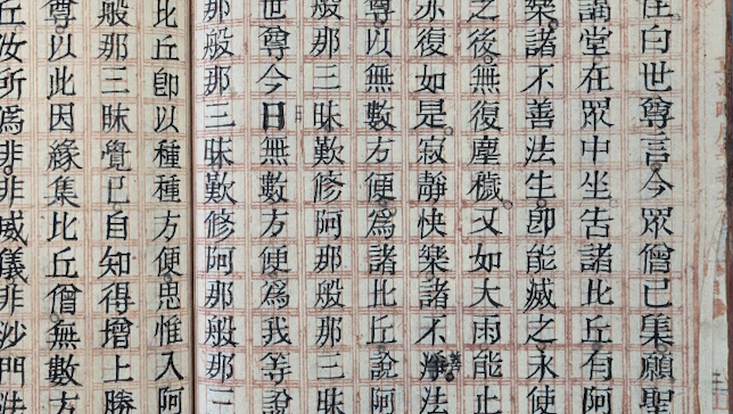 白世尊言今眾僧已集願聖
講堂在眾中坐告諸比丘有阿
樂諸不善法生卽能滅之永使
之後無復塵穢又如大雨能止
亦復如是寂靜快樂諸不淨善法
尊以無數方便爲諸比丘說阿
般那三昧歎修阿那般那三昧
世尊今日無數方便爲我等說
那般那三昧歎修阿那般那三
比丘卽以種種方便思惟入阿
般那三昧覺已自知得增上勝
尊以此因緣集比丘僧無數方
丘汝所爲非非威儀非沙門法